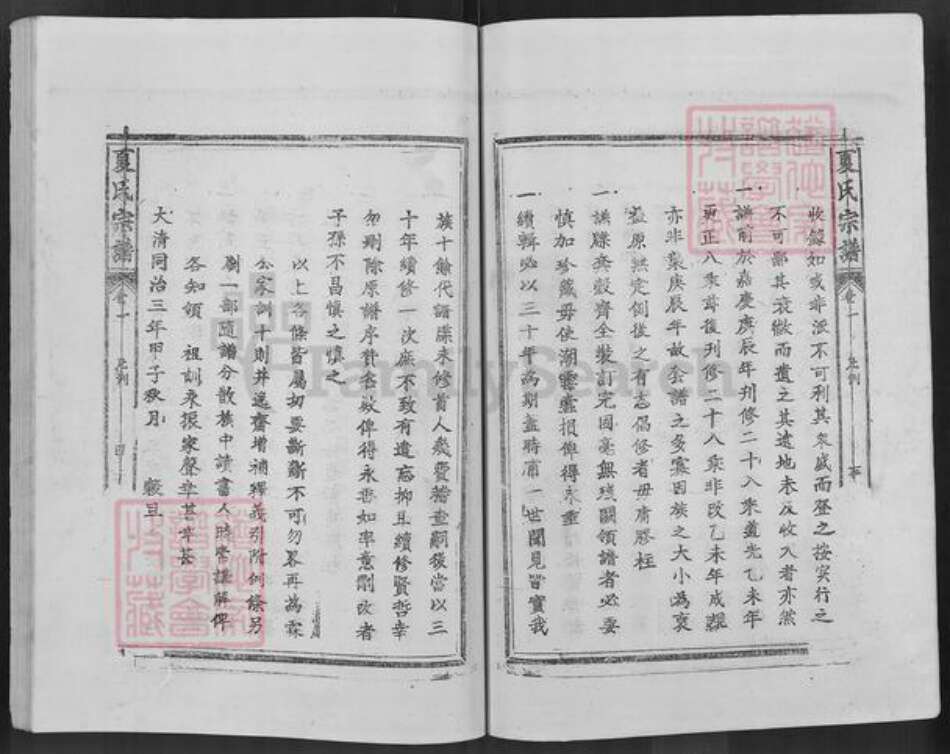 夏氏宗譜
卷一
凡例
收錄如或非派不可利其衆盛而登之按实行之
不可鄙其衰微而遺之其遠地未及收入者亦然
一譜前於嘉慶庚辰年刊修二十八乘道光乙未年
更正八乘茲復刊修二十八乘非改乙未年成規
亦非棄庚辰年故套譜之多寡因族之大小為裒
益原無定例後之有志倡修者毋膚膠柱
一譜牒套數齊全裝訂完固毫無殘闕領譜者必要
慎加珍藏毋使潮霉蠹損俾得永垂
一續輯必以三十年為期蓋時滿一世聞見皆實我
族十餘代譜牒未修首人幾費稽查嗣後當以三
十年續修一次庶不致有遺忘抑且續修賢哲幸
勿刪除原譜序针各欵俾得永垂如率意刪改者
子孫不昌慎之慎之
以上各條皆屬切要斷斷不可勿畧再為霖
公家訓十則并逸齋增補釋義引附例條另
刷一部隨譜分散族中讀書人時常講解俾
各知領 祖訓永振家聲幸甚幸甚
大清同治三年甲子秋月 穀旦
夏氏宗譜
卷一
凡例
四
FamilySearch